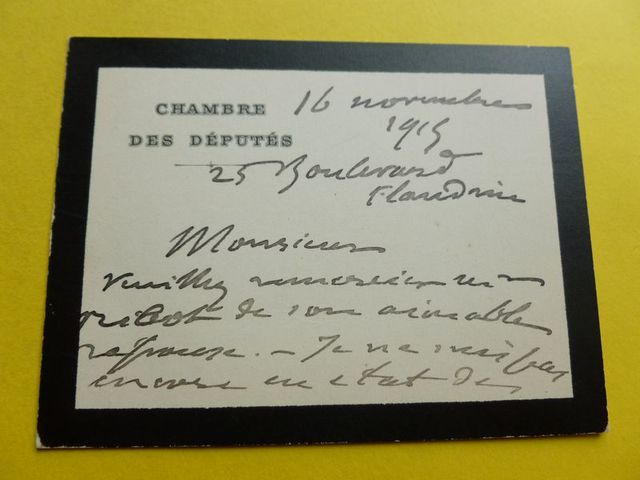 CHAMBRE
DES DÉPUTÉS
16 novembre
1915
25 Boulevard
Flandrin
Monsieur
Veuillez remercier
Ribot de son aimable
réponse. — Je ne suis pas
encore en état de